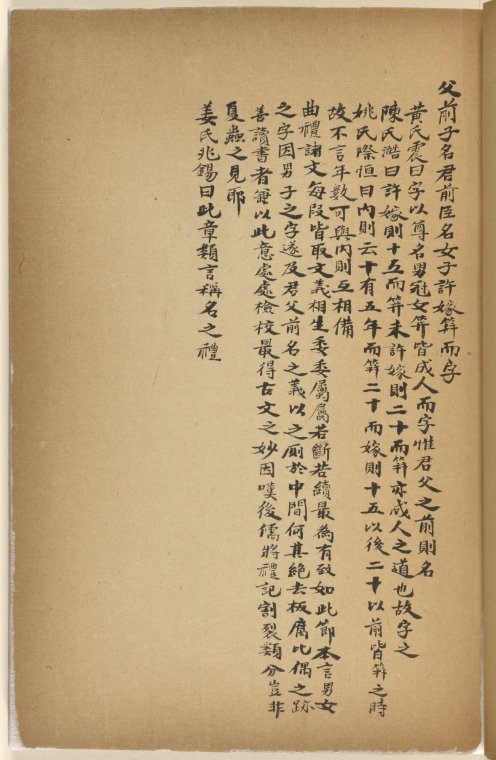 父前子名君前臣名女子許嫁筓而字
黄氏震曰字以尊名男冠女筓皆成人而字惟君父之前則名
陳氏澔曰許嫁則十五而筓未許嫁則二十而筓亦成人之道也故字之
姚氏際恒曰內則云十有五年而筓二十而嫁則十五以後二十以前皆筓之時
故不言年數可與內則互相備
曲禮諸文每段皆取文義相生委委屬屬若斷若續最為有致如此節本言男女
之字因男子之字遂及君父前名之義以之厠於中間何其絶去板腐比偶之跡
善讀書者兼以此意處處檢校最得古文之妙因嘆後儒將禮記割裂類分豈非
夏蟲之見耶
姜氏兆錫曰此章類言稱名之禮